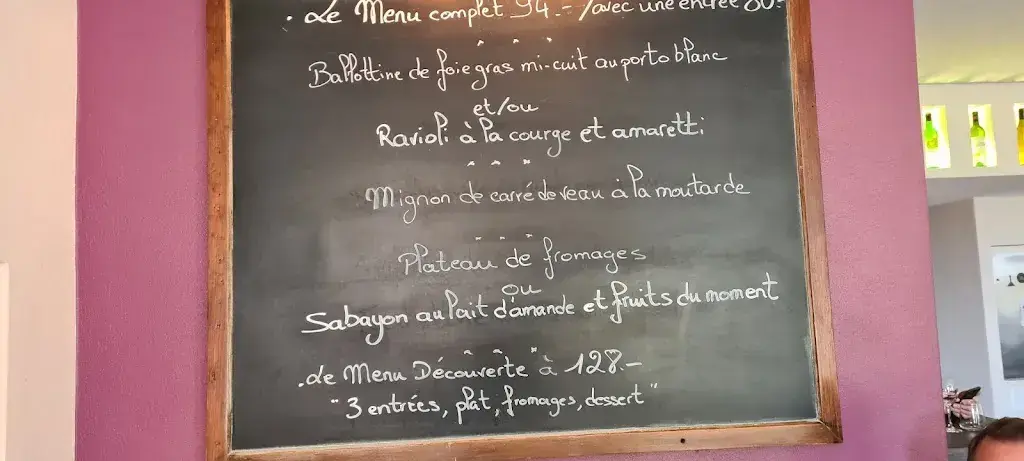 . Le Menu complet 94.- / avec une entrée 80.-
Ballottine de foie gras mi-cuit au porto blanc
et/ou
Ravioli à la courge et amaretti
Mignon de carré de veau à la moutarde
Plateau de fromages
ou
Sabayon au lait d'amande et fruits du moment
. Le Menu Découverte à 128.-
" 3 entrées, plat, fromages, dessert "